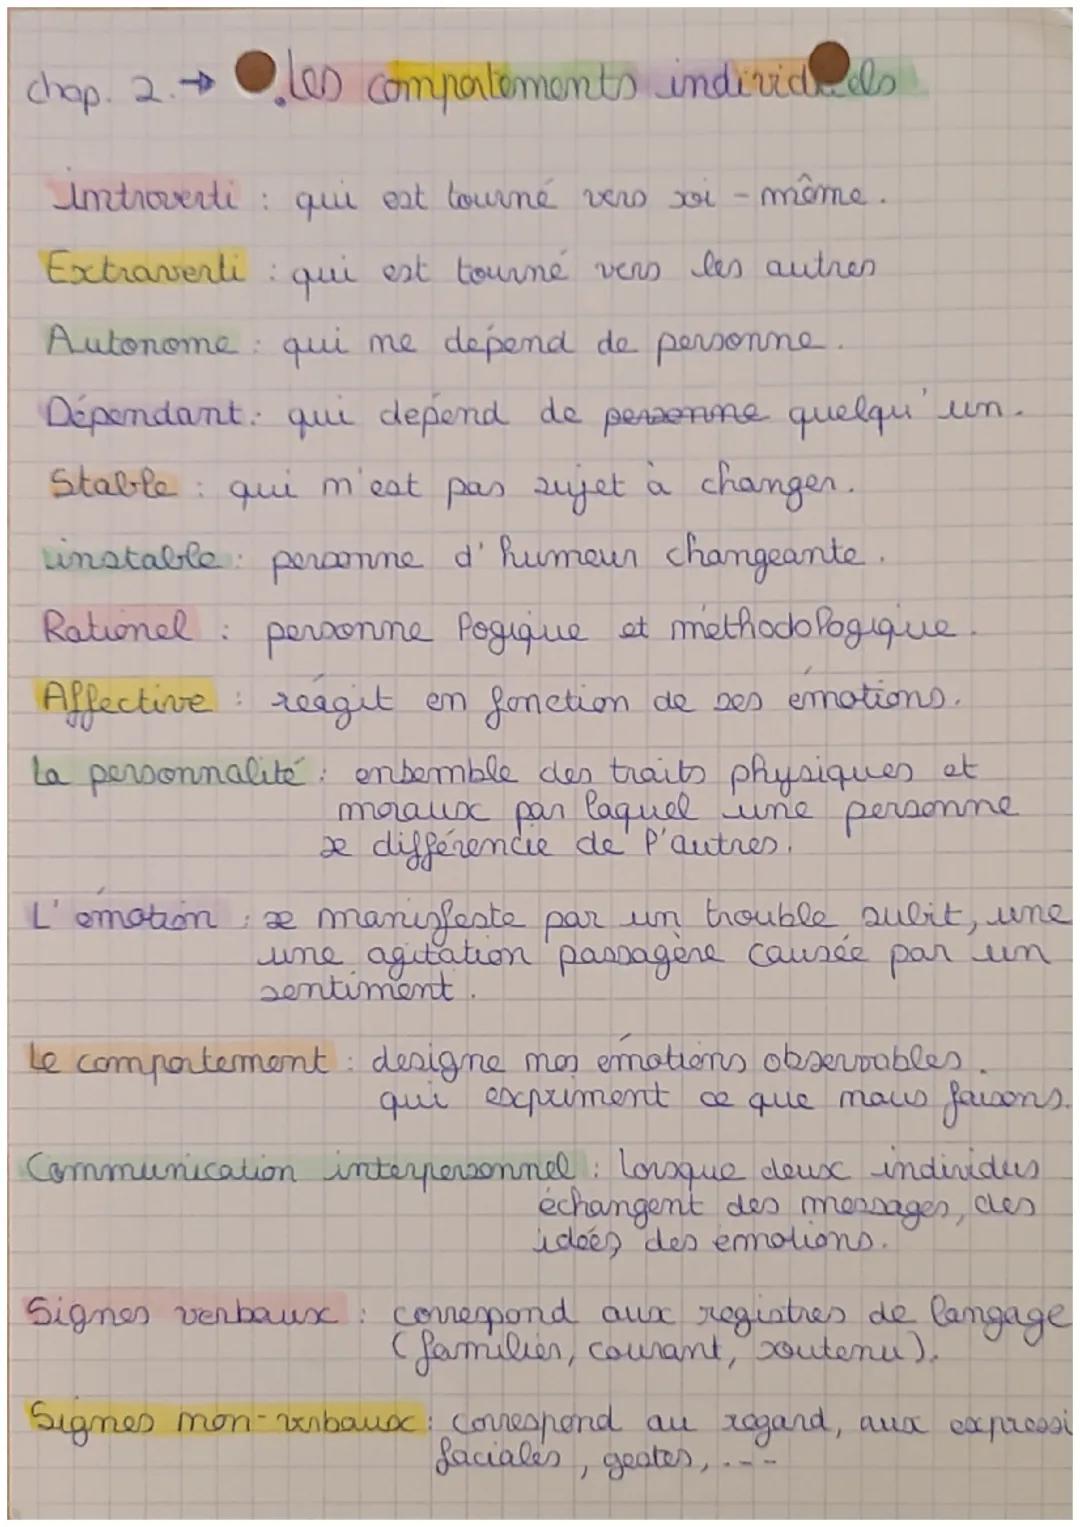 chap. 2. → Les comportements individuels
Introverti : qui est tourné vers soi-même.
Extraverti : qui est tourné vers les autres
Autonome : qui ne dépend de personne.
Dépendant : qui dépend de personne quelqu'un.
Stable : qui n'est pas sujet à changer.
instable : personne d'humeur changeante.
Rationel : personne logique et méthodologique.
Affective : réagit en fonction de ses émotions.
La personnalité : ensemble des traits physiques et
moraux par laquel une personne
se différencie de l'autres.
L'émotion : se manifeste par un trouble subit, une
une agitation passagère causée par un
sentiment.
Le comportement : designe nos émotions observables.
qui expriment ce que nous faisons.
Communication interpersonnel : lorsque deux individus
échangent des messages, des
idées, des émotions.
Signes verbaux : correspond aux registres de langage
(familier, courant, soutenu).
Signes non-verbaux : correspond au regard, aux expressi
faciales, gestes, ...